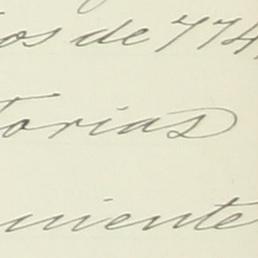 os de 774
torias
miente